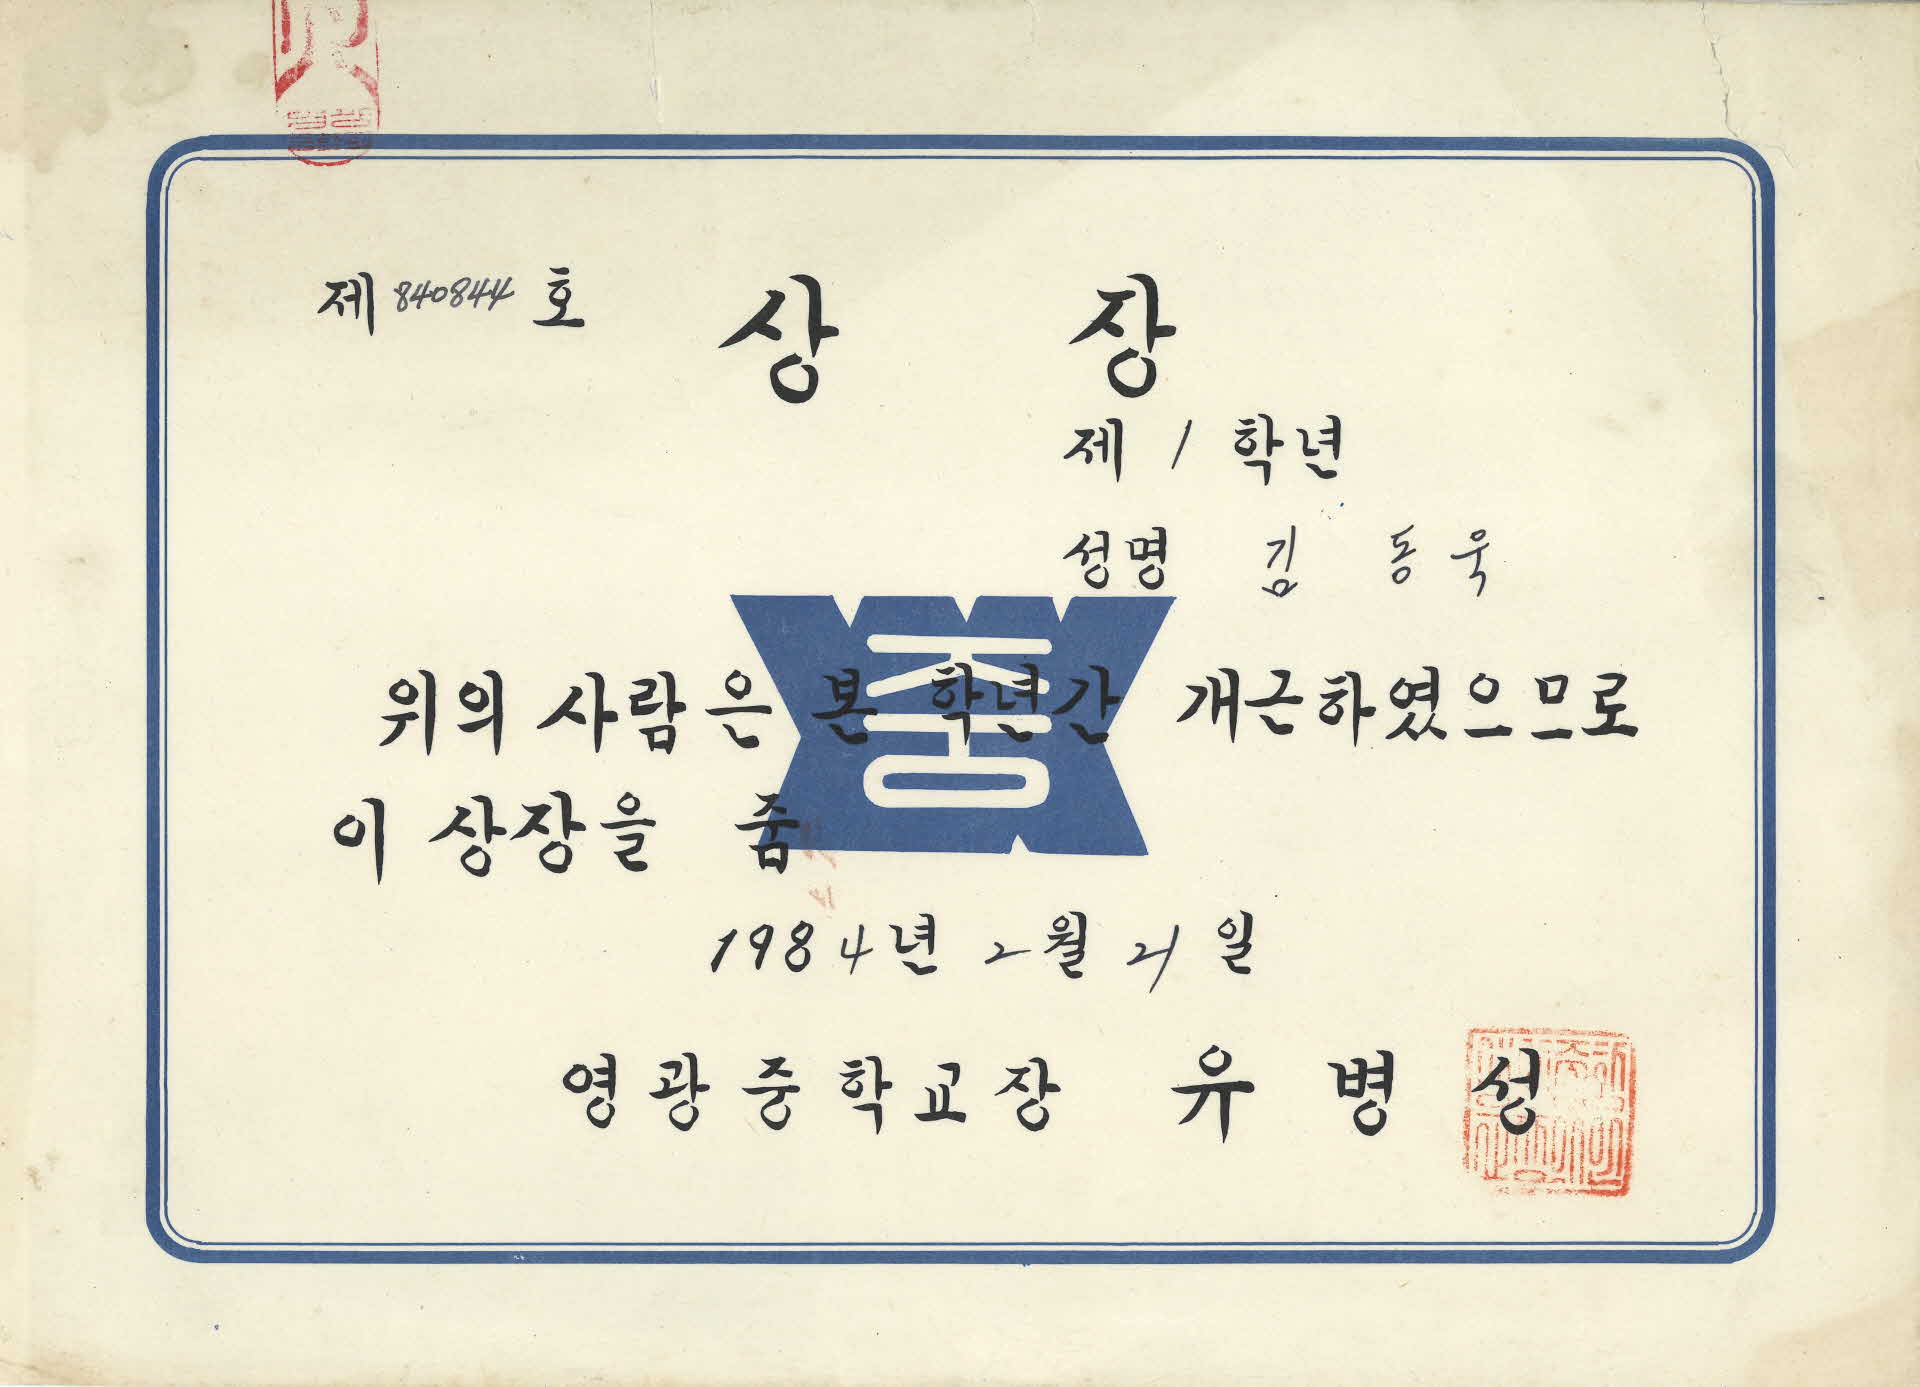 제 840844 호
상 장
제 1 학년
성명 김 동 욱
중
위의 사람은 본 학년간 개근하였으므로
이 상장을 줌
1984년 2월 21일
영광중학교장 유 병 성